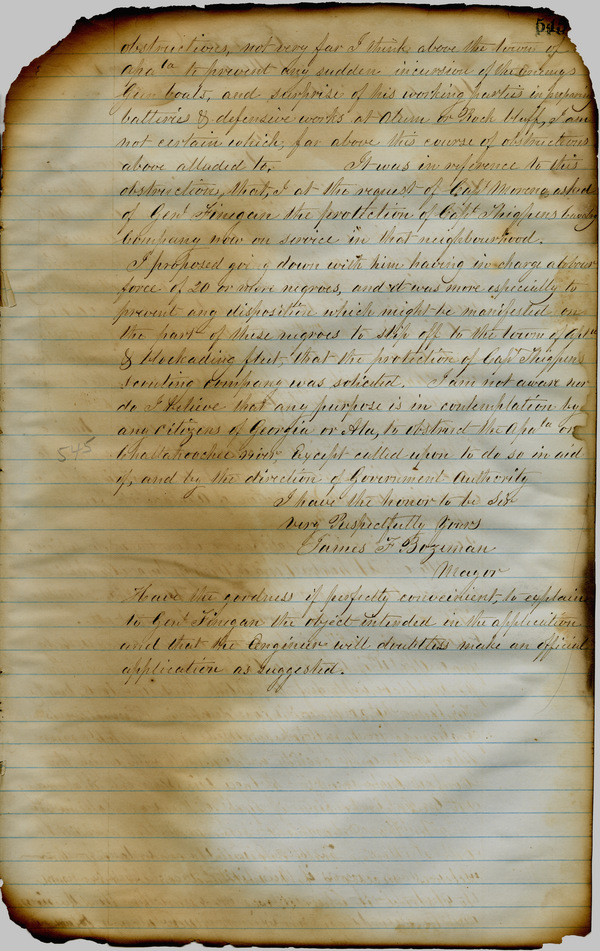 545
obstructions, not very far I think above the town of
Apa^la to prevent any sudden incursion of the enemys
Gun boats, and surprise of his working parties in preparing
batteries & defensive works at Alum or Rock bluff, I am
not certain which; far above this course of obstructions
above alluded to. It was in reference to this
obstruction, that, I at the request of Capt Moreno, asked
of Genl Finegan the protection of Capt Thigpens Cavalry
Company now on service in that neighbourhood.
I proposed going down with him having in charge a labour
force of 20 or more negroes, and it was more especially to
prevent any disposition which might be manifested on
the part of these negroes to slip off to the town of Apl^a
& blockading fleet, that the protection of Capt Thigpens
scouting company was solicited. I am not aware nor
do I believe that any purpose is in contemplation by
any citizens of Georgia or Ala, to obstruct the Apa^la or
545
Chattahoochee river Except called upon to do so in aid
of, and by the direction of Government Authority
I have the honor to be Sir
Very Respectfully Yours
James F Bozeman
Mayor
Have the goodness if perfectly convenient, to explain
to Genl Finegan the object intended in the application
and that the Engineer will doubtless make an official
application as suggested.